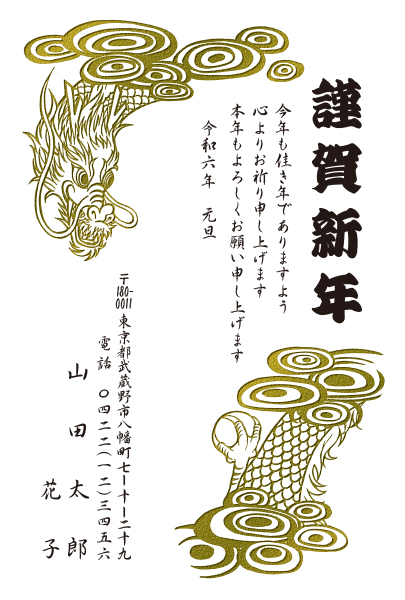 謹賀新年
今年も佳き年でありますよう
心よりお祈り申し上げます
本年もよろしくお願い申し上げます
令和六年　元旦
〒180-0011
東京都武蔵野市八幡町七ー十ー二十九
電話　〇四二二(一二)三四五六
山田太郎
花子